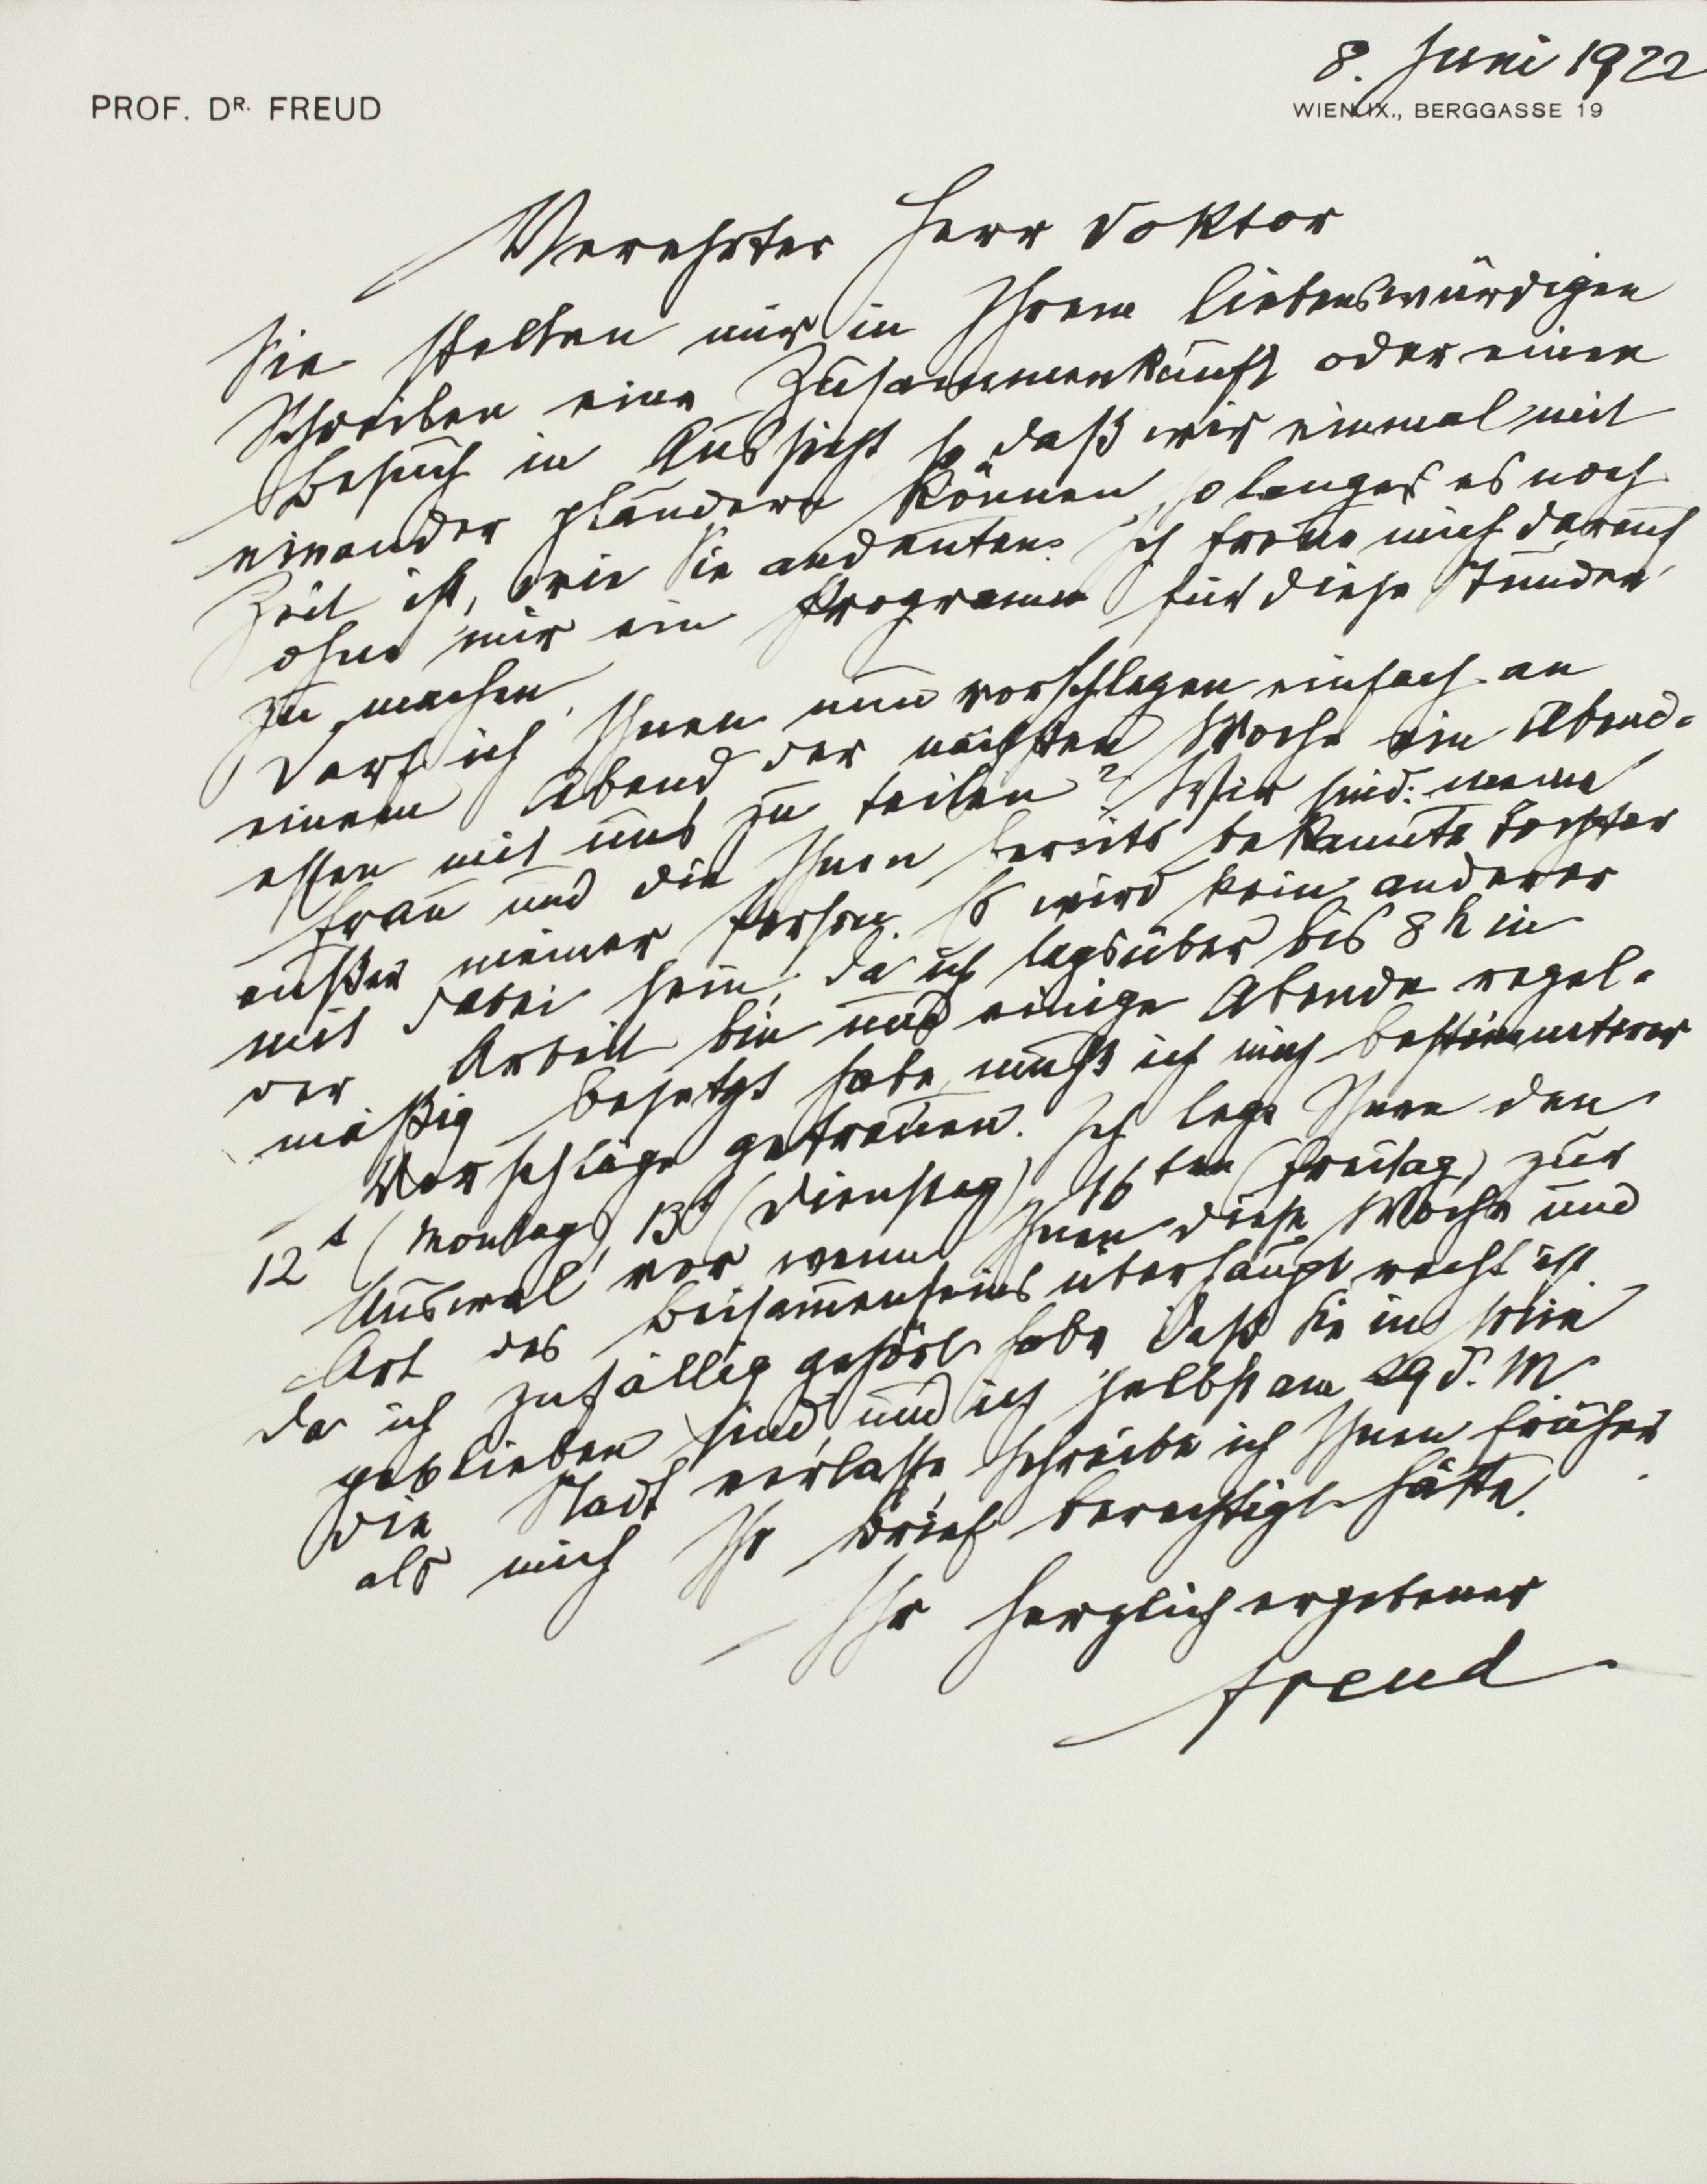 8. Juni 1922
PROF. DR. FREUD
WIEN IX., BERGGASSE 19
Verehrter Herr Doktor
Sie stellen mir in Ihrem liebenswürdigen
Schreiben eine Zusammenkunft oder einen
Besuch in Aussicht so daß wir einmal mit
einander plaudern können, so lange es noch
Zeit ist, wie Sie andeuten. Ich freue mich darauf
ohne mir ein Programm für diese Stunden
zu machen.
Darf ich Ihnen nun vorschlagen einfach an
einem Abend der nächsten Woche ein Abend-
essen mit uns zu teilen? Wir sind: meine
Frau und die Ihnen bereits bekannte Tochter
außer meiner Person. Es wird kein anderer
mit dabei sein. Da ich tagsüber bis 8 h in
der Arbeit bin und einige Abende regel-
mäßig besetzt habe, muß ich mich bestimmterer
Vorschläge getrauen. Ich lege Ihnen den
12t (Montag), 13t (Dienstag), 16ten (Freitag) zur
Auswal vor, wenn Ihnen diese Woche und
Art des Beisammenseins überhaupt recht ist.
Da ich zufällig gehört habe daß Sie in Wien
geblieben sind, und ich selbst am d. M
die Stadt verlasse, schreibe ich Ihnen früher
als mich Ihr Brief berechtigt hätte.
Ihr herzlich ergebener
Freud